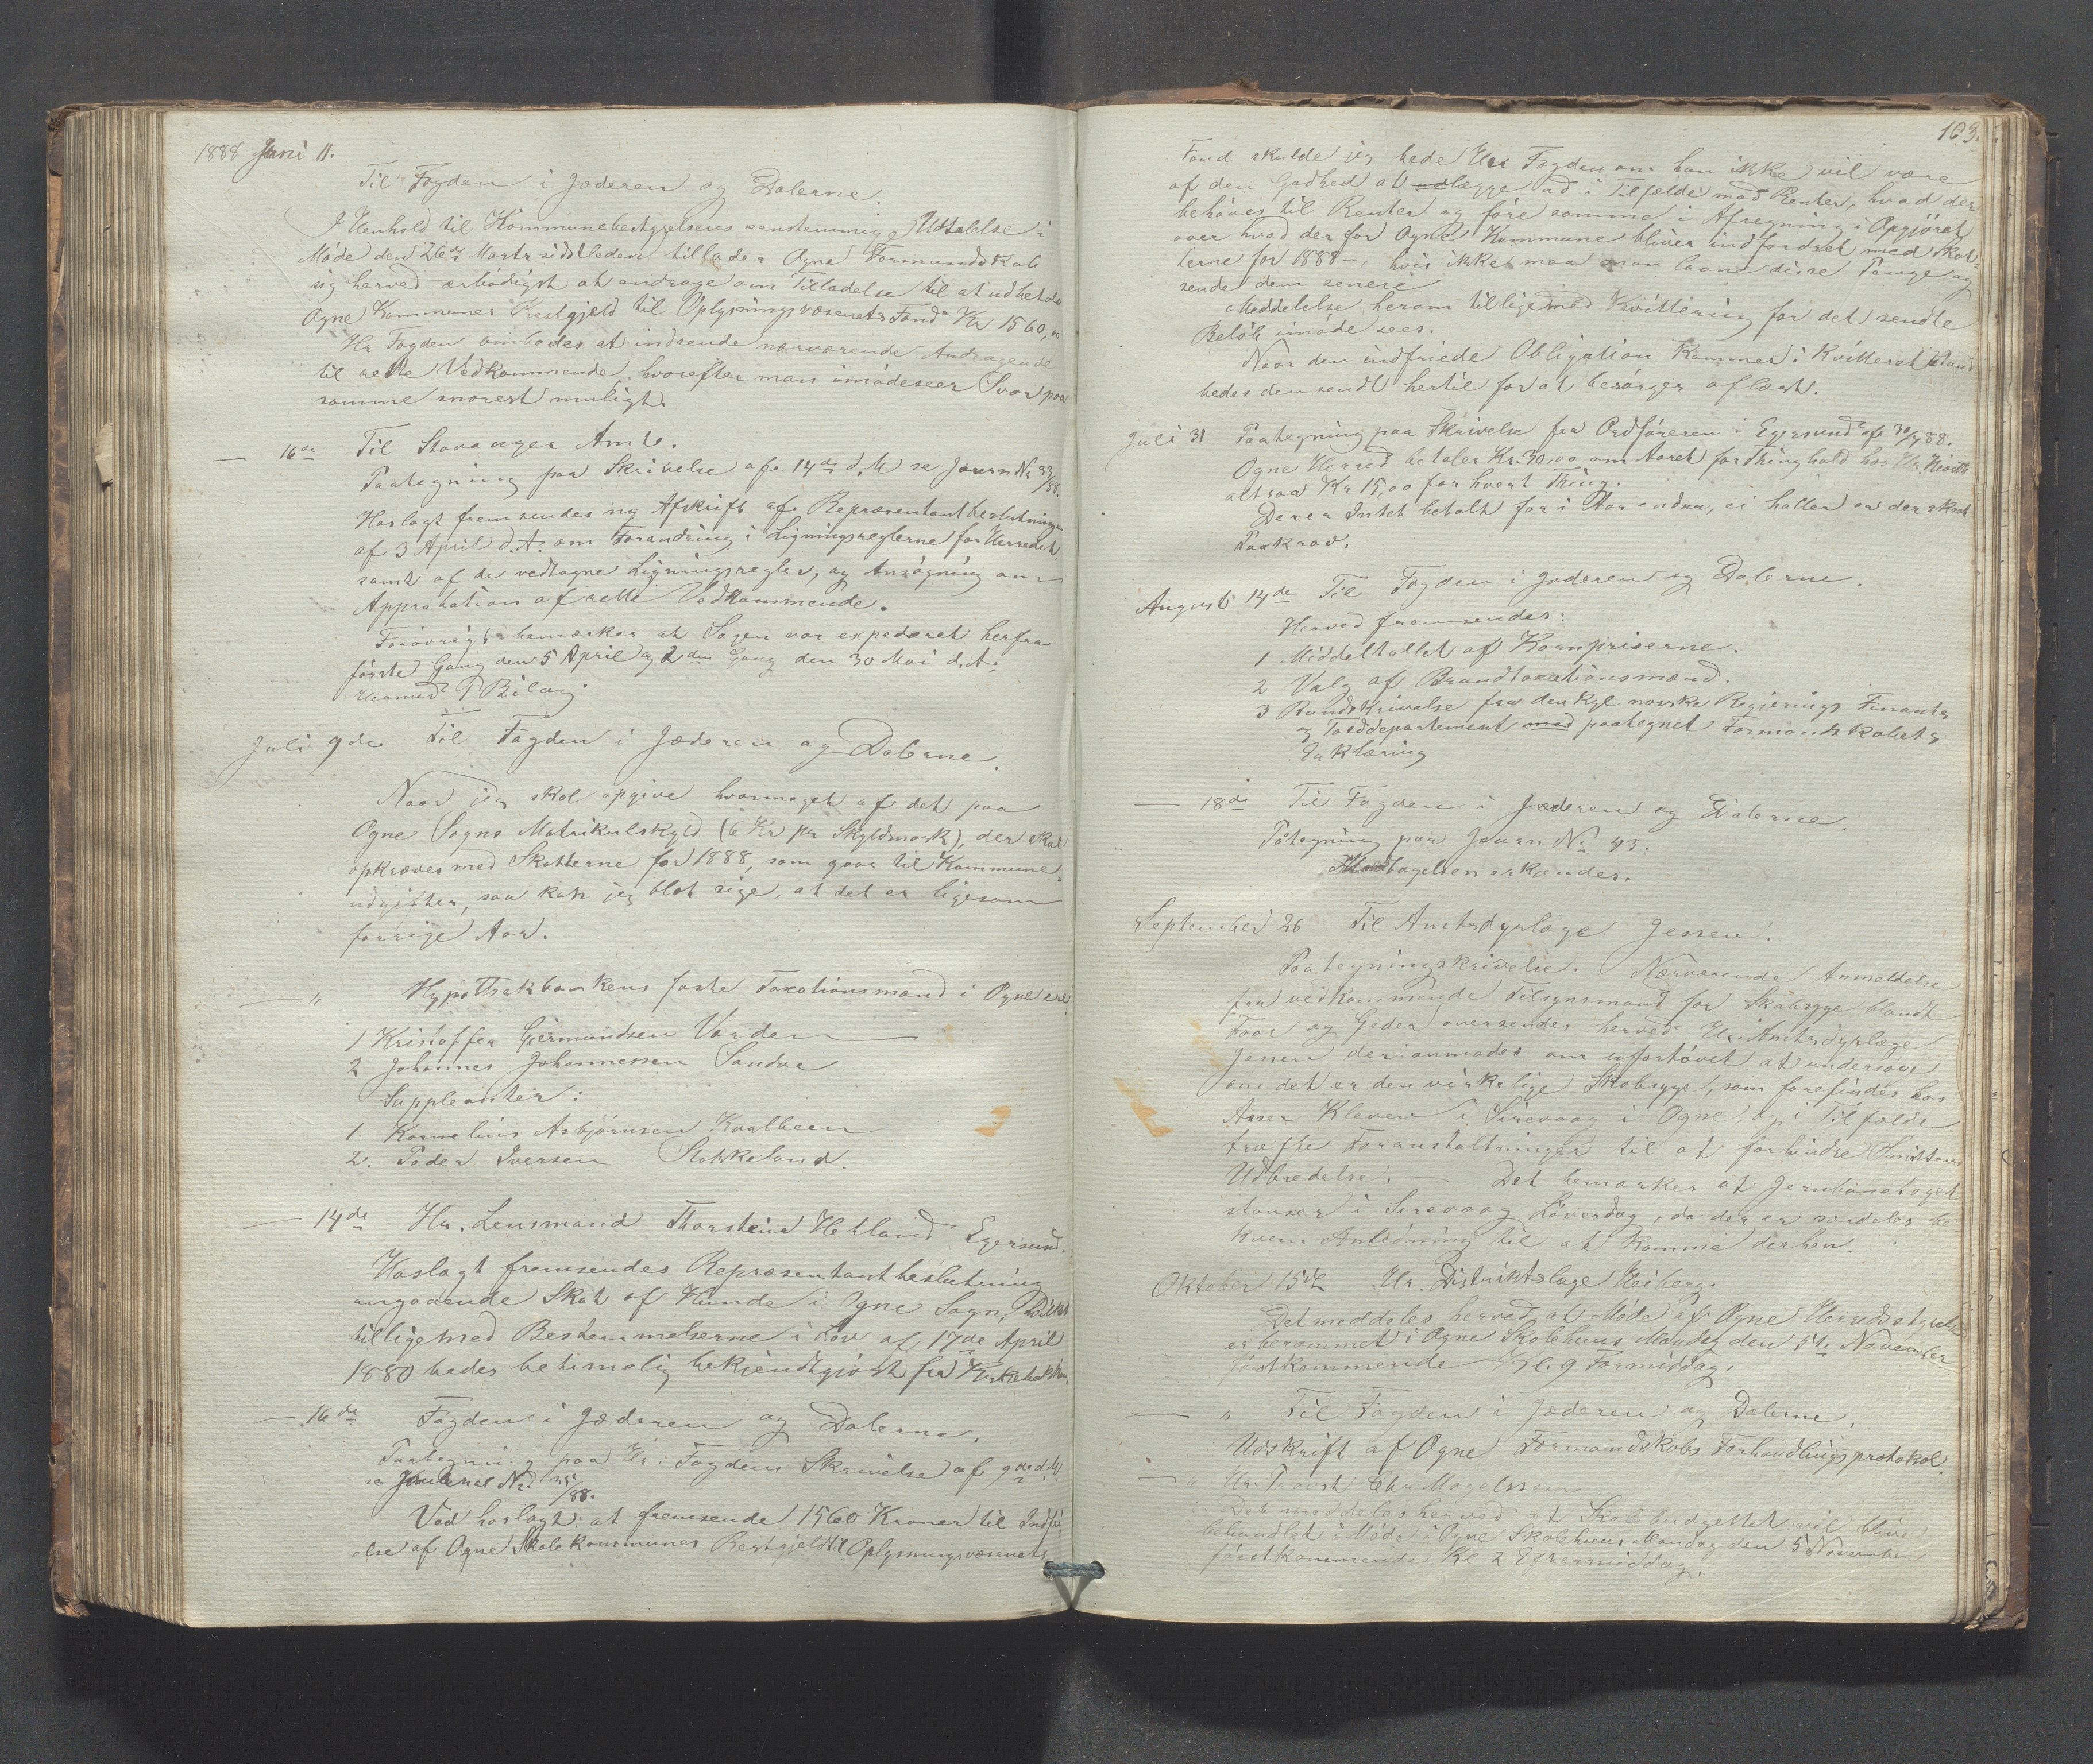 1888 Juni 11.
Til Fogden i Jæderen og Dalerne.
I Henhold til Kommunebestyrelsens enstemmige Udtalelse i
Møde den 26de Marts sidstleden tillader Ogne Formandskab
sig herved ærbödigst at andrage om Tilladelse til at udbetale
Ogne Kommunes Restgjeld til Oplysningsvæsenets Fond Kr 1560,00
Hr Fogden ombedes at indsende nærværende Andragende
til rette Vedkommende, hvorefter man imødeseer Svar paa
samme snarest muligt.
— 16de Til Stavanger Amt.
Paategning paa Skrivelse af 14de d. M se Journ No 33/88.
Hoslagt fremsendes ny Afskrift af Repræsentantbeslutningen
af 3 April d. A. om Forandring i Ligningsreglerne for Herredet
samt af de vedtagne Ligningsregler, og Ansögning om
Approbation af rette Vedkommende.
Forövrigt bemærkes at Sagen var expederet herfra
förste Gang den 5 April og 2den Gang den 30 Mai d. A.
Hermed 1 Bilag
Juli 9de Til Fogden i Jæderen og Dalerne.
Naar jeg skal opgive hvormeget af det paa
Ogne Sogns Matrikulskyld (6 Kr pr Skyldmark), der skal
opkræves med Skatterne for 1888, som gaar til Kommune-
udgifter, saa kan jeg blot sige, at det er ligesom
forrige Aar.
— " Hypothekbankens faste Taxationsmænd i Ogne ere
1 Kristoffer Germundsen Varden
2 Johannes Johannessen Sandve
Suppleanter:
1. Kornelius Asbjörnsen Kvalbeen
2. Peder Iversen Stokkeland.
— 14de Hr. Lensmand Thorstein Hetland Egersund.
Hoslagt fremsendes Repræsentantbeslutning
angaaende Skat af Hunde i Ogne Sogn, hvilket
tilligemed Bestemmelserne i Lov af 17de April
1880 bedes betimelig bekjendtgjort fra Kirkebakken
— 16de Fogden i Jæderen og Dalerne.
Paategning paa Hr. Fogdens Skrivelse af 9de d. M.
se Journal No 35/88.
Ved hoslagt at fremsende 1560 Kroner til Indfri-
else af Ogne Skolekommunes Restgjeld til Oplysningsvæsenets
103.
Fond skulde jeg bede Hr Fogden om han ikke vil være
af den Godhed at lægge ud i Tilfælde med Renter, hvad der
behöves til Renter og före samme i Afregning i Opgjöret
over hvad der for Ogne Kommune bliver indfordret med Skat-
terne for 1888 —, hvis ikke maa man laane disse Penge og
sende dem senere
Meddelelse herom tilligemed Kvittering for det sendte
Belöb imöde sees.
Naar den indfriede Obligation kommer i Kvitteret Stand
bedes den sendt hertil for at besörges aflæst.
Juli 31 Paategning paa Skrivelse fra Ordföreren i Egersund af 30/7 88.
Ogne Herred betaler Kr. 30,00 om Aaret for Thinghold hos Hr.
altsaa Kr 15,00 for hvert Thing.
Der er Intet betalt for i Aar endnu, ei heller er der skeet
Paakrav.
August 14de Til Fogden i Jæderen og Dalerne.
Herved fremsendes:
1 Middeltallet af Kornpriserne.
2 Valg af Brandtaxationsmænd.
3 Rundskrivelse fra den Kgl norske Regjerings Finants
og Tolddepartement med paategnet Formandskabets
Erklæring
— 18de Til Fogden i Jæderen og Dalerne.
Påtegning paa Journ No 43.
Modtagelsen erkjendes.
September 26 Til Amtsdyrlæge Jessen.
Paategningskrivelse. Nærværende Anmeldelse
fra vedkommende Tilsynsmand for Skabsyge blandt
Faar og Geder oversendes herved Hr. Amtsdyrlæge
Jessen der anmodes om ufortövet at undersöge
om det er den virkelige Skabsyge, som forefindes hos
Asser Kleven i Sirevaag i Ogne og i Tilfælde
træffe Foranstaltninger til at forhindre Smittens
Udbredelse. — Det bemærkes at Jernbanetoget
stanser i Sirevaag Löverdag, da der er særdeles be-
kvem Anledning til at komme derhen.
Oktober 15de Hr. Distriktslæge Heiberg.
Det meddeles herved at Møde af Ogne Herredsstyrelse
er berammet i Ogne Skolehuus Mandag den 5te November
förstkommende Kl. 9 Formiddag.
— " Til Fogden i Jæderen og Dalerne.
Udskrift af Ogne Formandskabs Forhandlingsprotokol.
— " Hr. Provst Chr Magelssen
Det meddeles herved at Skolebudgettet vil blive
behandlet i Møde i Ogne Skolehuus Mandag den 5 November
förstkommende Kl 2 Eftermiddag.